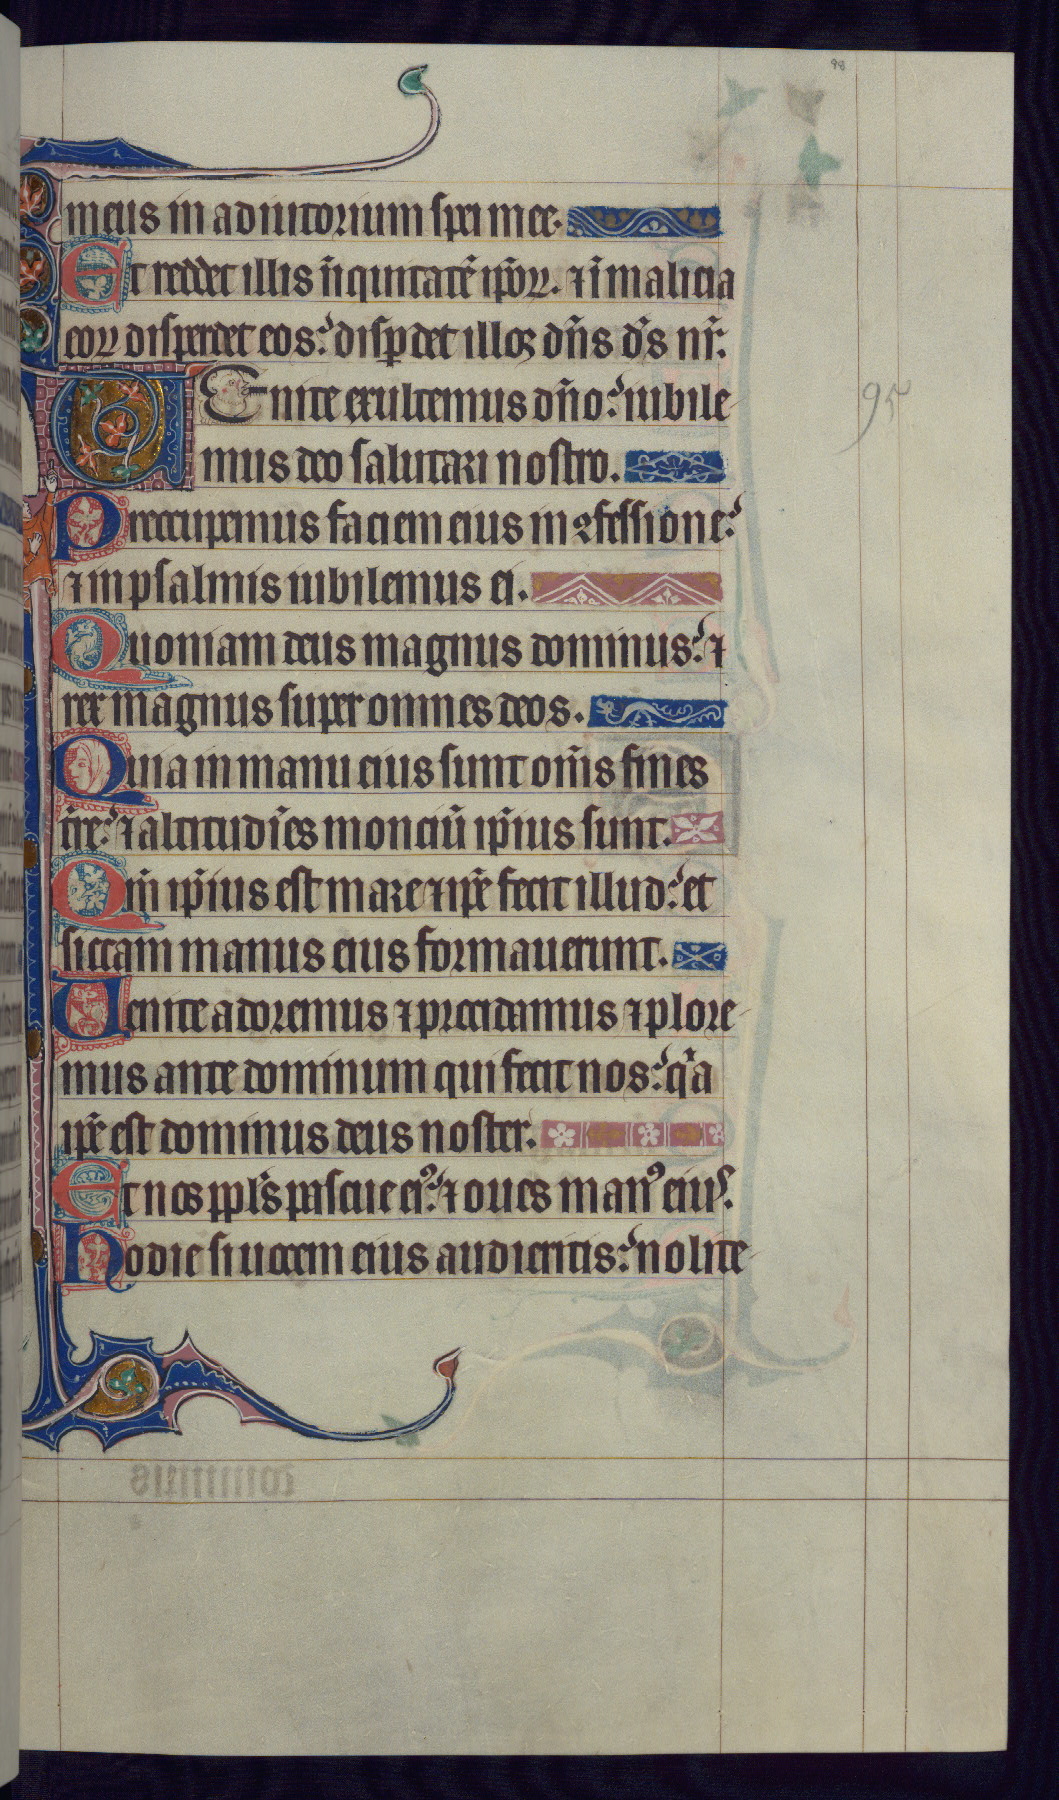 98
meus in adiutorium spei mee.
Et reddet illis iniquitatē ip̄oꝝ. ⁊ ī malicia
eoꝝ disperdet eos: disꝑdet illos dn̄s ds̄ nr̄.
Uenite exultemus dn̄o: iubile
mus deo salutari nostro.
Preoccupemus faciem eius in ꝯfessione:
⁊ in psalmis iubilemus ei.
Quoniam deus magnus dominus: ⁊
rex magnus super omnes deos.
Quia in manu eius sunt om̄s fines
tr̄e: ⁊ altitudīes monciū ip̄ius sunt.
Qm̄ ip̄ius est mare ⁊ ip̄e fecit illud: et
siccam manus eius formauerunt.
Uenite adoremus ⁊ procidamus ⁊ plore
mus ante dominum qui fecit nos: qͣa
ip̄e est dominus deus noster.
Et nos ppl̄s pascue eiꝰ: ⁊ oues manꝰ eius.
Hodie si uocem eius audieritis: nolite
95